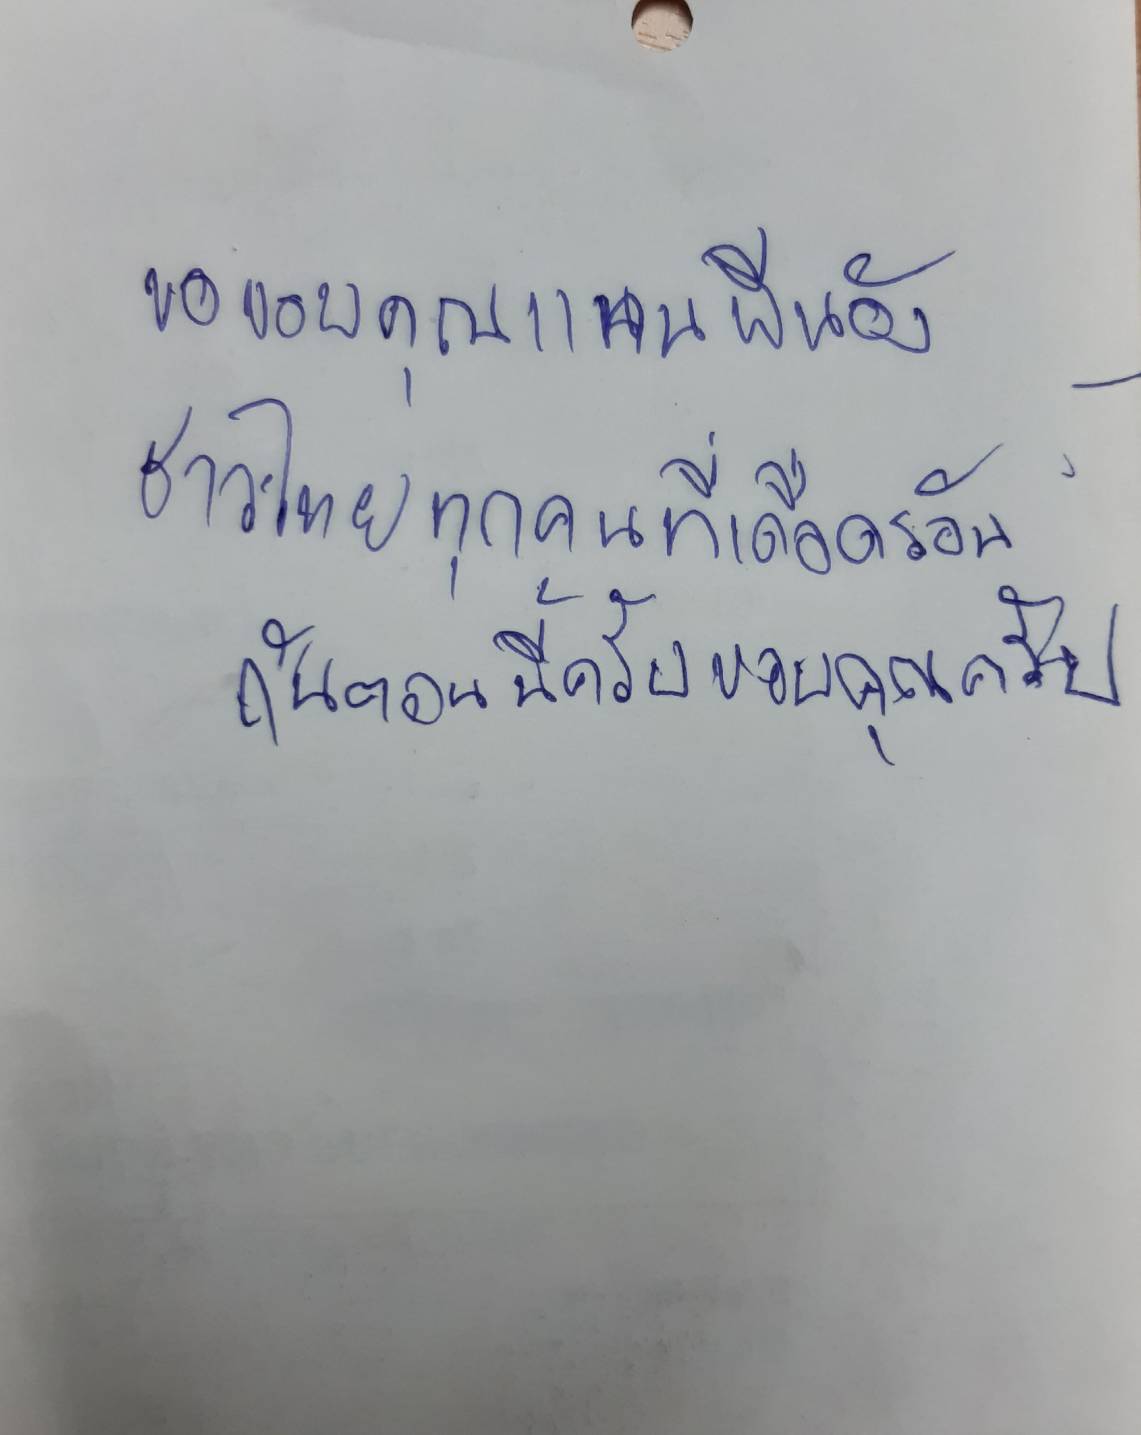 ขอขอบคุณแทนพี่น้อง
ชาวไทยทุกคนที่เดือดร้อน
กันตอนนี้ครับขอบคุณครับ